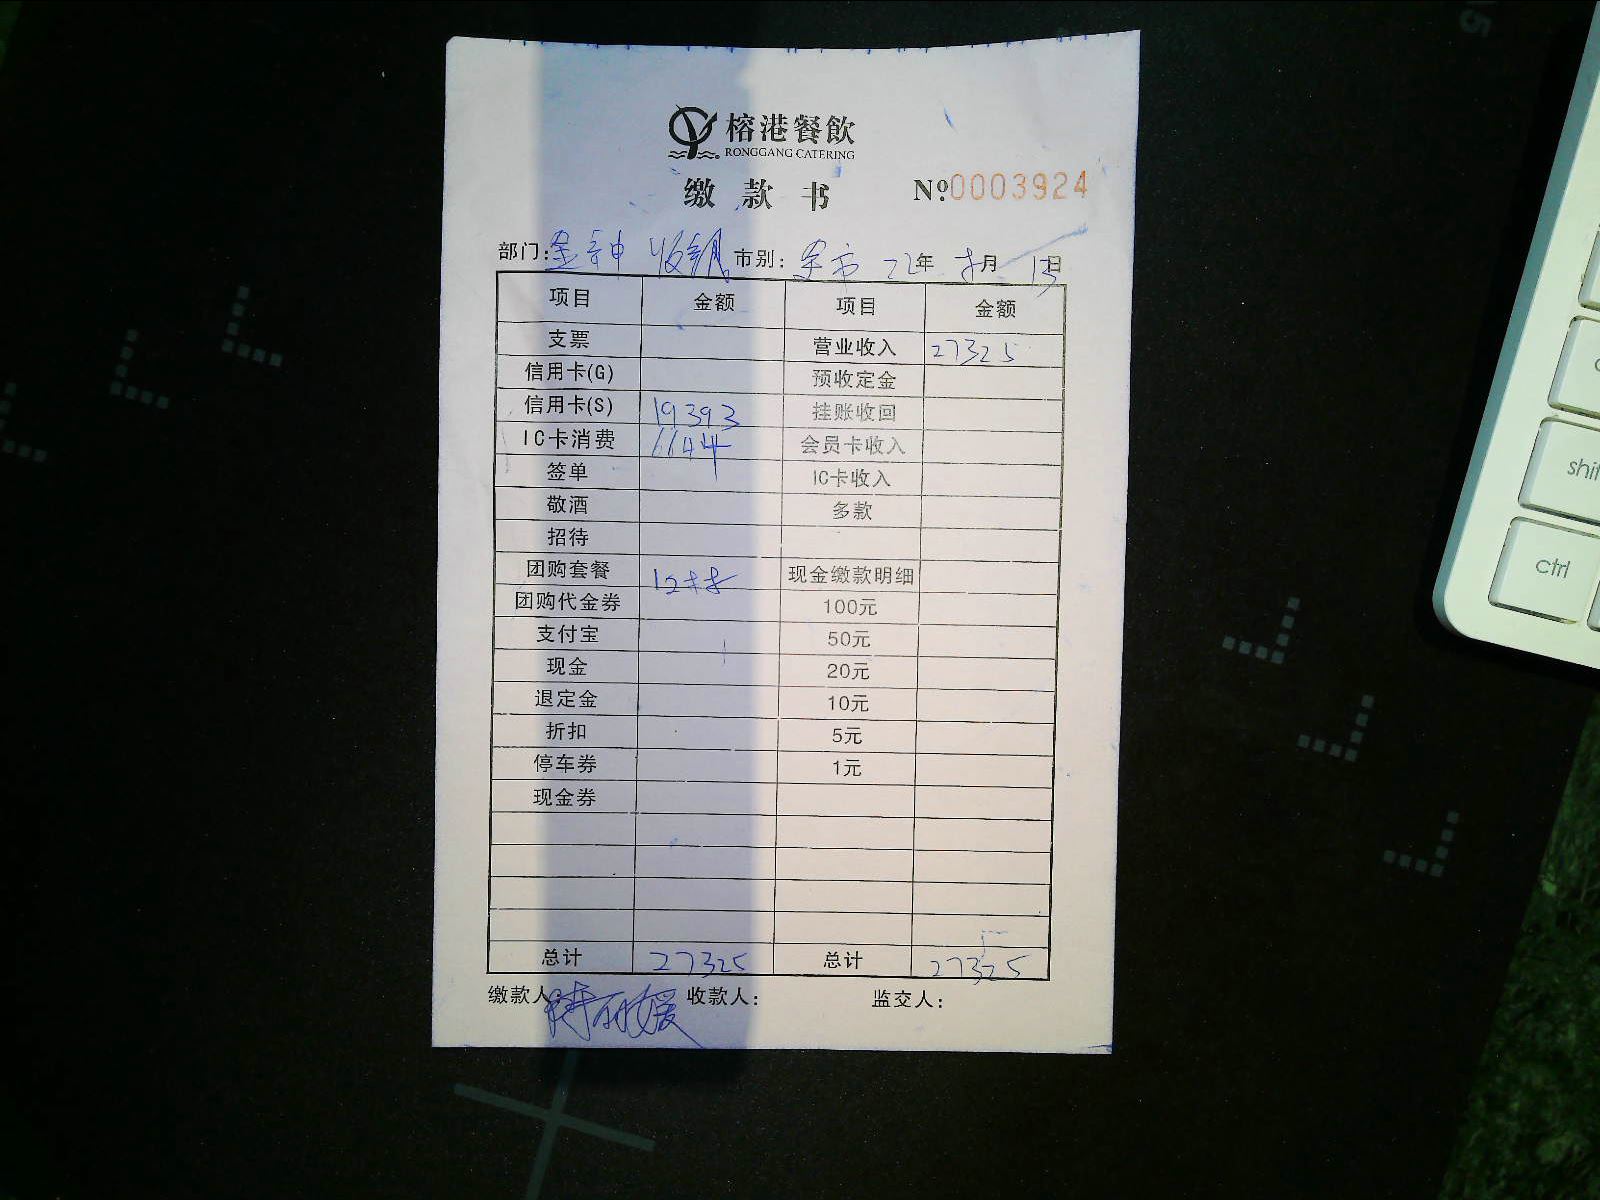 榕港餐飲
RONGGANG CATERING
缴款书 Nº:0003924
部门: 收银 市别: 全市 22年 8月 15日
项目 金额 项目 金额
支票 营业收入 27325
信用卡(G) 预收定金
信用卡(S) 19393 挂账收回
IC卡消费 6644 会员卡收入
签单 IC卡收入
敬酒 多款
招待
团购套餐 1288 现金缴款明细
团购代金券 100元
支付宝 50元
现金 20元
退定金 10元
折扣 5元
停车券 1元
现金券
总计 27325 总计 27325
缴款人 丽媛 收款人: 监交人:
shif
ctrl